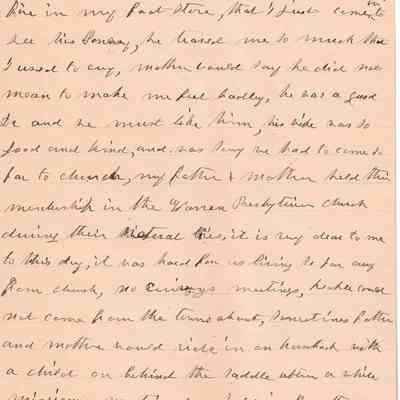 in my foot store, that I just came to
see his Sonney, he teased me so much that
I used to cry, mother would say he did not
mean to make me feel badly, he was a good
Dr and we must like him, his wife was so
good and kind, and was sorry we had to come so
far to church, my father & mother held their
membership in the Warren Presbyterian church
during their natural lives, it is very dear to me
to this day, it was hard for us living so far away
from church, no evening meetings, people could
not come from the towns about, sometimes father
and mother would ride in on horseback with
a child on behind the saddle when a while